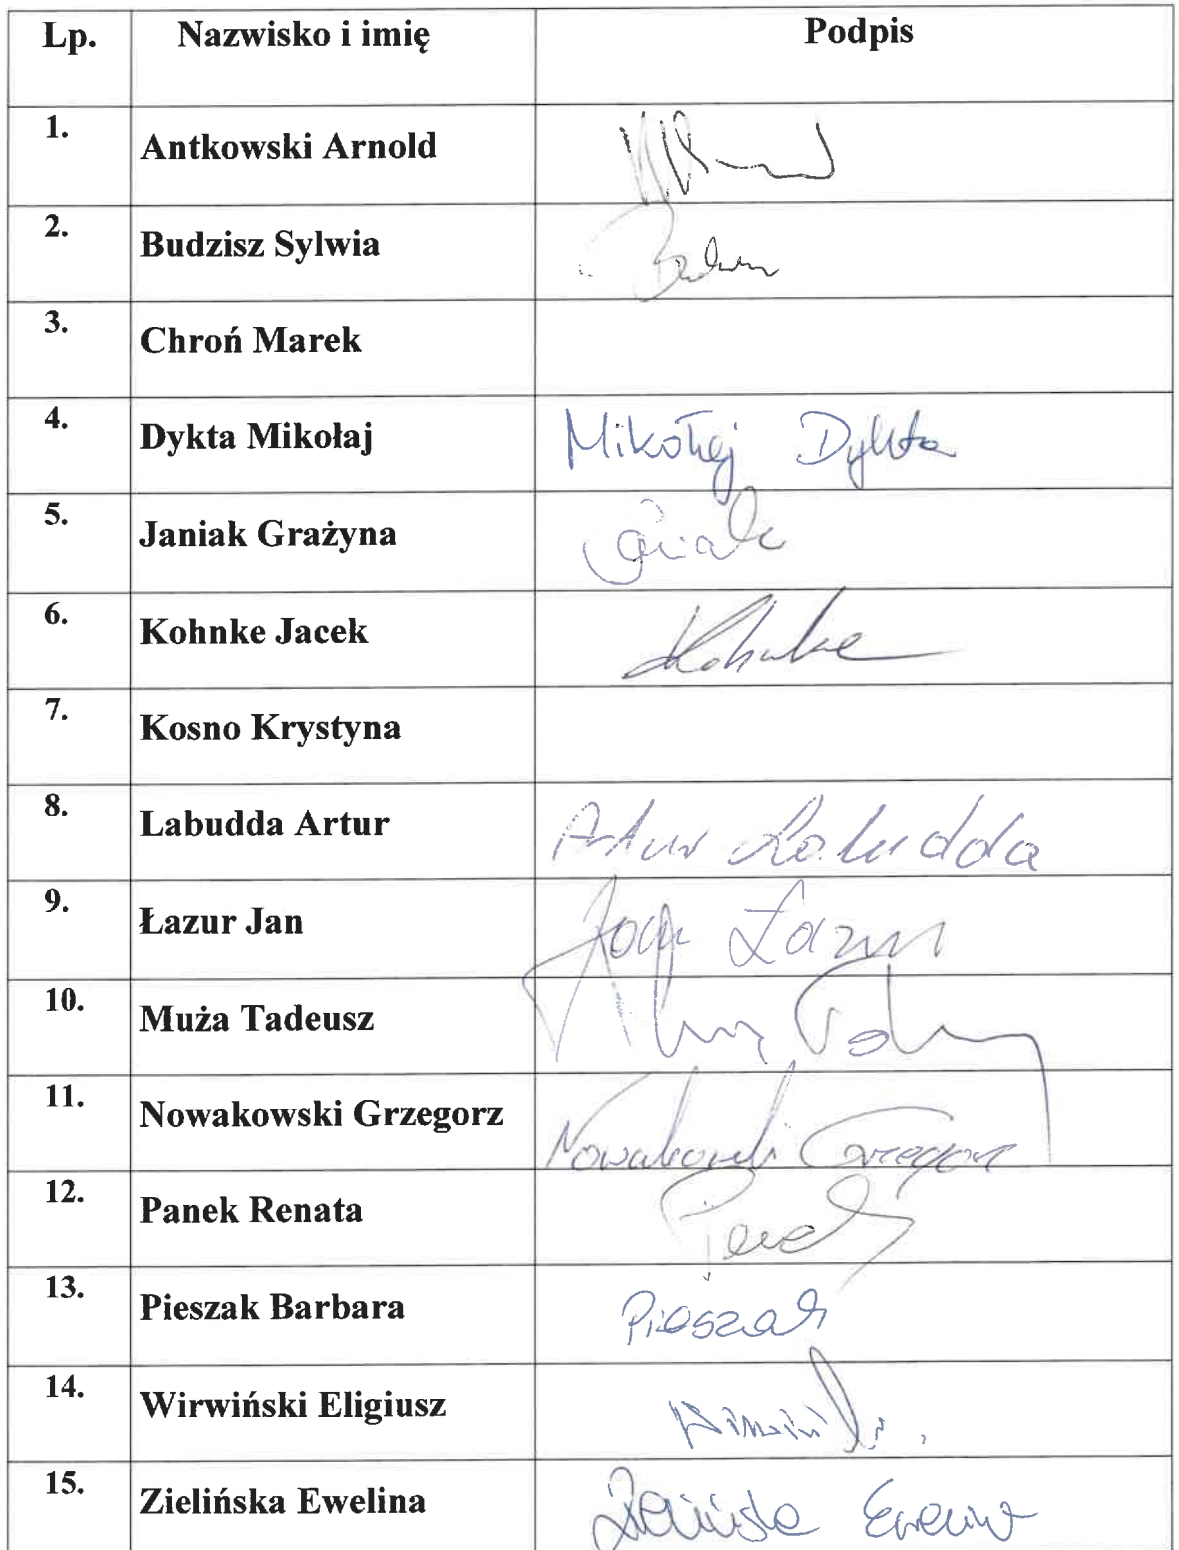 Lp. Nazwisko i imię Podpis
1. Antkowski Arnold
2. Budzisz Sylwia
3. Chroń Marek
4. Dykta Mikołaj Mikołaj Dykta
5. Janiak Grażyna
6. Kohnke Jacek Kohnke
7. Kosno Krystyna
8. Labudda Artur Artur Labudda
9. Łazur Jan Jan Łazur
10. Muża Tadeusz
11. Nowakowski Grzegorz Nowakowski Grzegorz
12. Panek Renata
13. Pieszak Barbara Pieszak
14. Wirwiński Eligiusz
15. Zielińska Ewelina Zielińska Ewelina